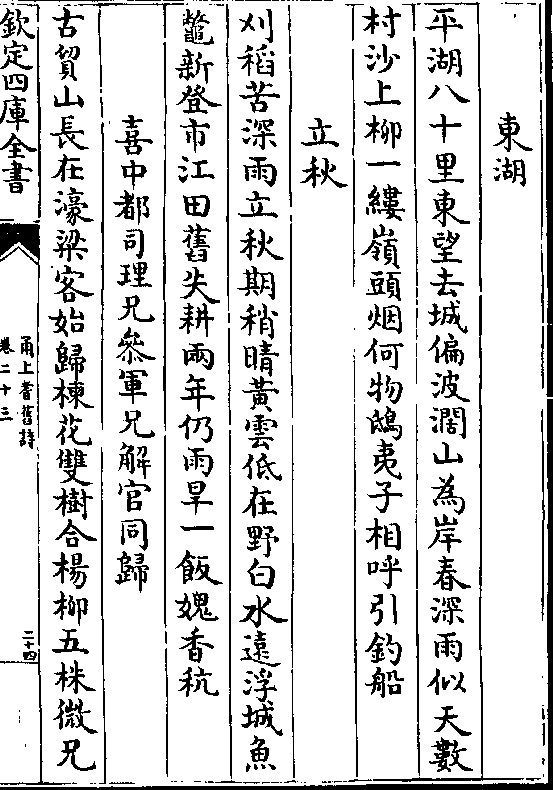 東湖
平湖八十里東望去城偏波濶山為岸春深雨似天數
村沙上柳一縷嶺頭烟何物鴟夷子相呼引釣船
立秋
刈稻苦深雨立秋期稍晴黃雲低在野白水遠浮城魚
鼈新登市江田舊失耕兩年仍雨旱一飯媿香秔
喜中都司理兄叅軍兄解官同歸
古貿山長在濠梁客始歸棟花雙樹合楊柳五株微兄
欽定四庫全書
甬上耆舊詩
卷二十三
二十四